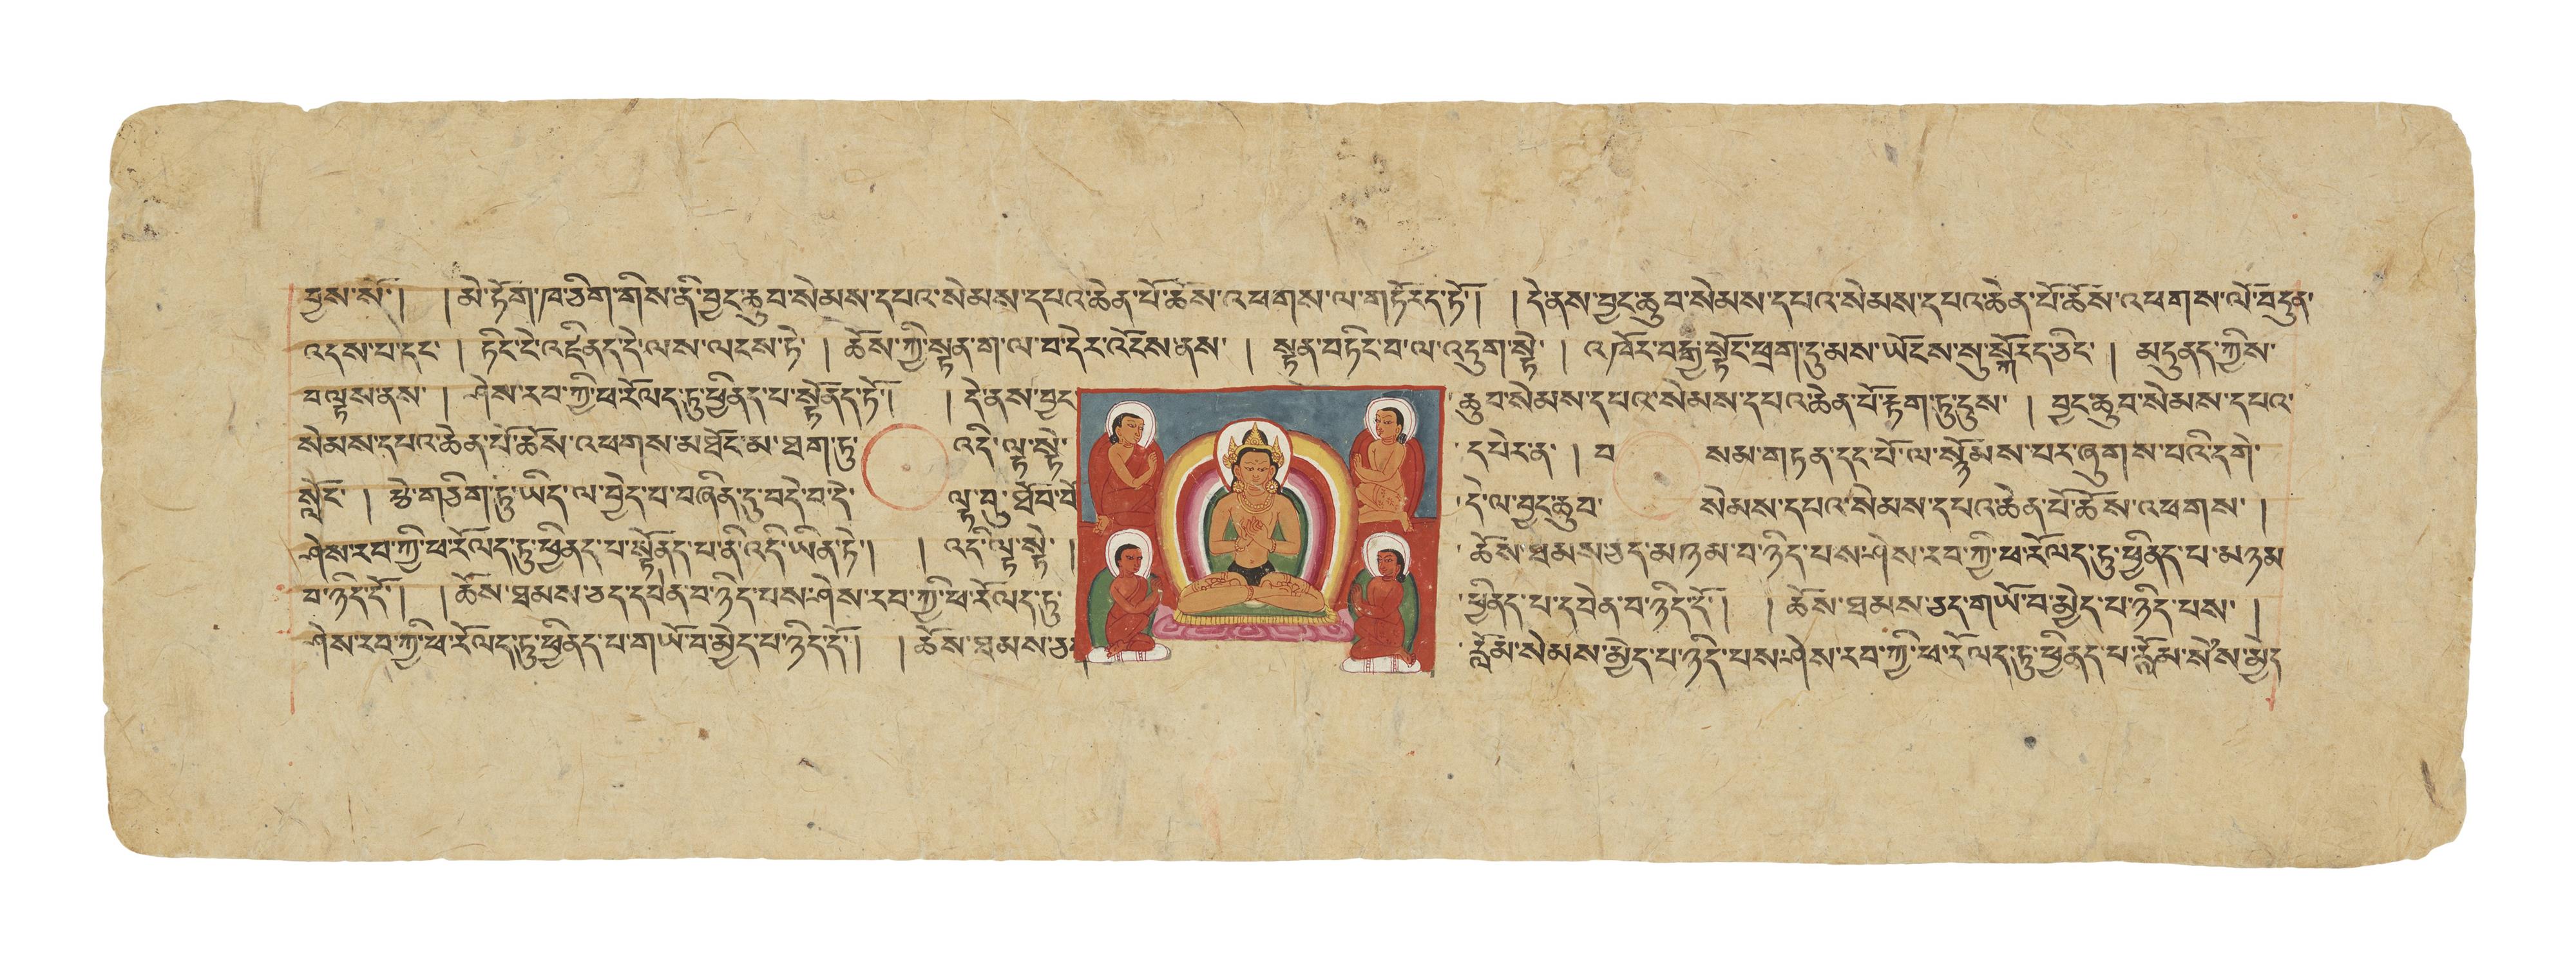 བྱས་སོ། ། མེ་ཏོག་ཁ་ཅིག་གིས་ནི་བྱང་ཆུབ་སེམས་དཔའ་སེམས་དཔའ་ཆེན་པོ་ཆོས་འཕགས་ལ་གཏོརད་ཏོ། ། དེ་ནས་བྱང་ཆུབ་སེམས་དཔའ་སེམས་དཔའ་ཆེན་པོ་ཆོས་འཕགས་ལོ་བདུན་
འདས་པ་དང་ ། ཏིང་ངེ་འཛིནད་དེ་ལས་ལངས་ཏེ་ ། ཆོས་ཀྱི་སྟན་ག་ལ་བ་དེར་འོངས་ནས་ ། སྟན་བཏིང་བ་ལ་འདུག་སྟེ་ ། འཁོར་བརྒྱ་སྟོང་ཕྲག་དུ་མས་ཡོངས་སུ་སྐོརད་ཅིང་ ། མདུནད་ཀྱིས་
བལྟས་ནས་ ། ཤེས་རབ་ཀྱི་ཕ་རོལད་ཏུ་ཕྱིནད་པ་སྟོནད་ཏོ། ། དེ་ནས་བྱང་ ཆུབ་སེམས་དཔའ་སེམས་དཔའ་ཆེན་པོ་རྟག་ཏུ་ངུས་ ། བྱང་ཆུབ་སེམས་དཔའ་
སེམས་དཔའ་ཆེན་པོ་ཆོས་འཕགས་མཐོང་མ་ཐག་ཏུ་ འདི་ལྟ་སྟེ་ དཔེར་ན་ ། བ སམ་གཏན་དང་པོ་ལ་སྙོམས་པར་ཞུགས་པའི་དགེ་
སློང་ ། རྩེ་གཅིག་ཏུ་ཡིད་ལ་བྱེད་པ་བཞིན་དུ་བདེ་བ་དེ་ ལྟ་བུ་ཐོབ་བོ དེ་ལ་བྱང་ཆུབ་ སེམས་དཔའ་སེམས་དཔའ་ཆེན་པོ་ཆོས་འཕགས་ །
ཤེས་རབ་ཀྱི་ཕ་རོལད་ཏུ་ཕྱིནད་པ་སྟོནད་པ་ནི་འདི་ཡིན་ཏེ་ ། ། འདི་ལྟ་སྟེ་ ། ཆོས་ཐམས་ཅད་མཉམ་བ་ཉིད་པས་ཤེས་རབ་ཀྱི་ཕ་རོལད་ཏུ་ཕྱིནད་པ་མཉམ
བ་ཉིད་དོ། ། ཆོས་ཐམས་ཅད་དབེན་བ་ཉིད་པས་ཤེས་རབ་ཀྱི་ཕ་རོལད་ཏུ་ ཕྱིནད་པ་དབེན་བ་ཉིད་དོ། ། ཆོས་ཐམས་ཅད་གཡོ་བ་མྱེད་པ་ཉིད་པས་ །
ཤེས་རབ་ཀྱི་ཕ་རོལད་ཏུ་ཕྱིནད་པ་གཡོ་བ་མྱེད་པ་ཉིད་དོ། ། ཆོས་ཐམས་ཅད རློམ་སེམས་མྱེད་པ་ཉིད་པས་ཤེས་རབ་ཀྱི་ཕ་རོལད་ཏུ་ཕྱིནད་པ་རློམ་སེམས་མྱེད